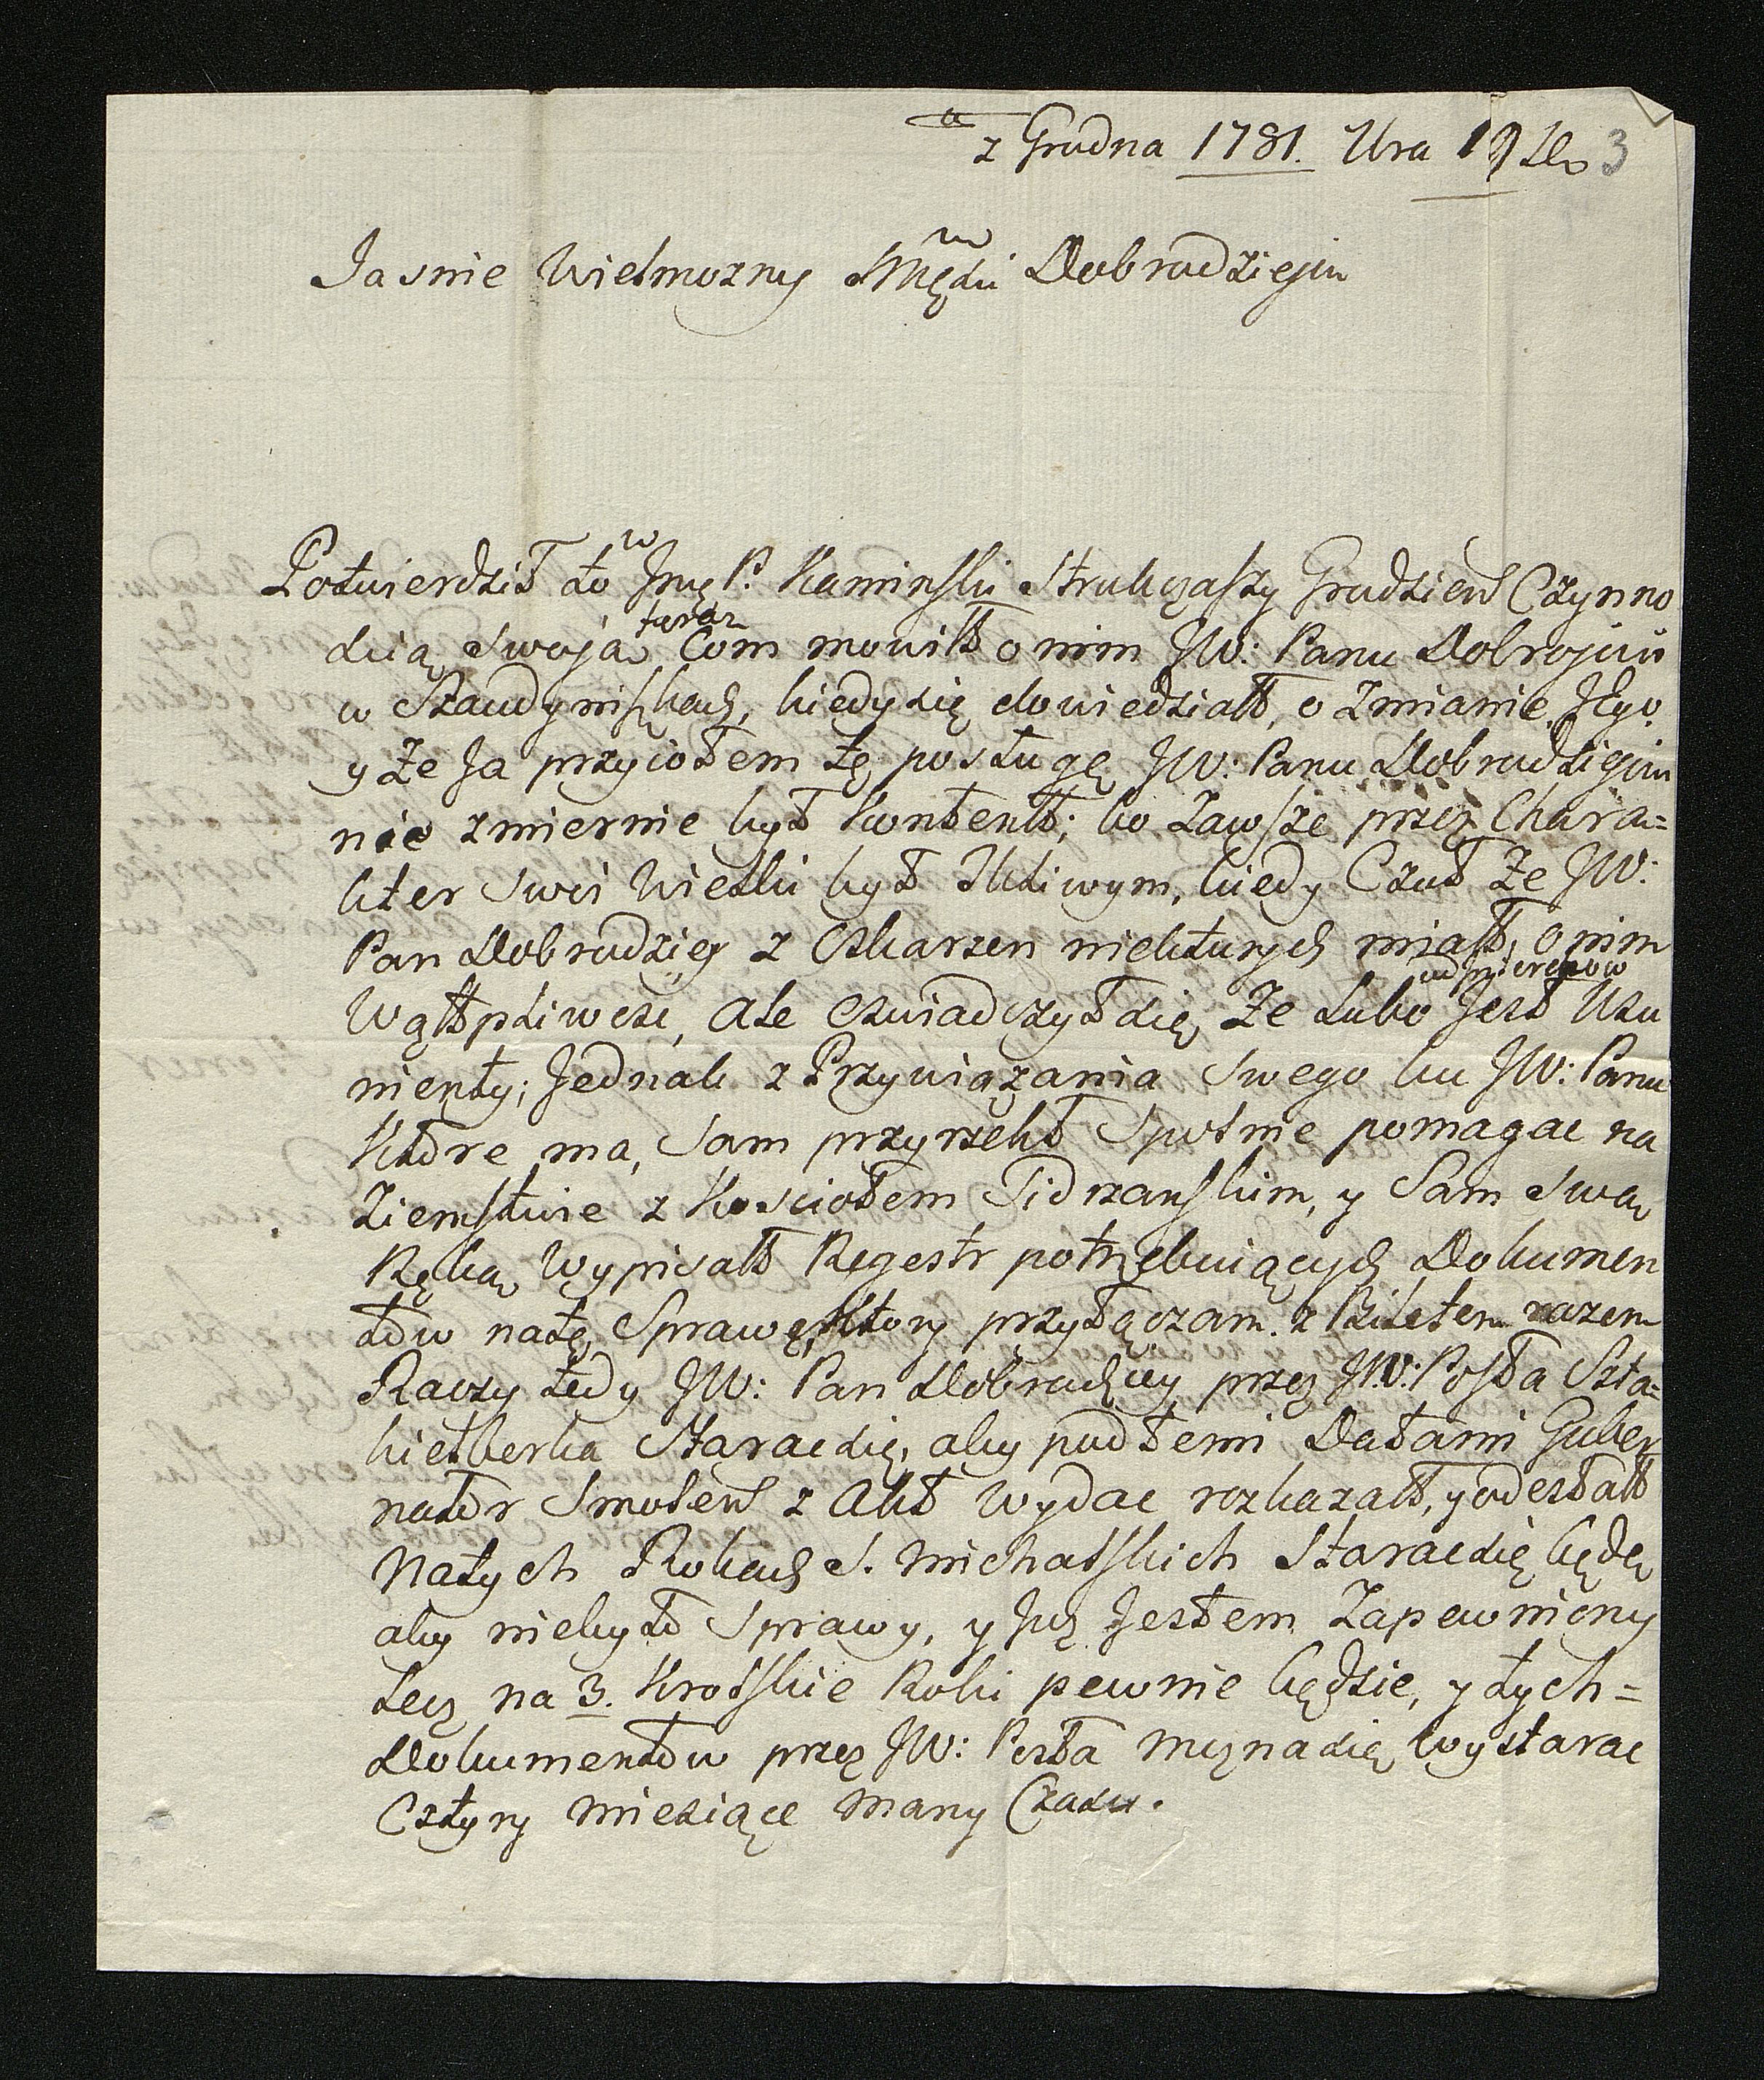 z Grodna 1781. Xbra 19 Dn 3
Jasnie Wielmozny Mści Dobrodzieju
Potwierdził to Jmć P. Kaminski Strukczaszy Grodzień Czynno
scią swoją teraz Com mowiłł o nim JW: Panu Dobrojuu
w Szawdyniszkach, kiedy się dowiedziałł, o Zmianie Jego
y że Ja przyiołem tę posługę JW: Panu Dobrodziejom
nie zmiernie był Kontentt; bo Zawsze przez Chara=
kter swoi Wielki był Tkliwym, kiedy Czuł że JW:
Pan Dobrodziey z Oskarzen niekturych miałł, o nim
Wątłpliwość, Ale oswiadczył się, że Lubo Jest Usu
nienty; Jednak z Przywiązania Swego ku JW: Panu
Które ma, Sam przyrzekł Spolnie pomagac na
Ziemstwie z Kosciołem Tidrzanskim, y Sam swą
Ręką Wypisałł Regestr potrzebuiących Dokumen
tów natę Sprawę, Ktory przyłączam. z Biletem razem
Raczy tedy JW: Pan Dobrodziey przez JW: Posła Szta=
kielberka Starac się, aby pod temi Datami Guber
nator Smoleń z Akt Wydac rozkazałł, y odesłałł
Natych Rokach S. Michalskich Starac się będę
aby niebyło Sprawy, y Już Jestem Zapewniony
Lecz na 3. Krolskie Roki pewnie będzie, y tych=
Dokumentów przez JW: Posła mozna się wystarac
Cztyry Miesiące Mamy Czasu.